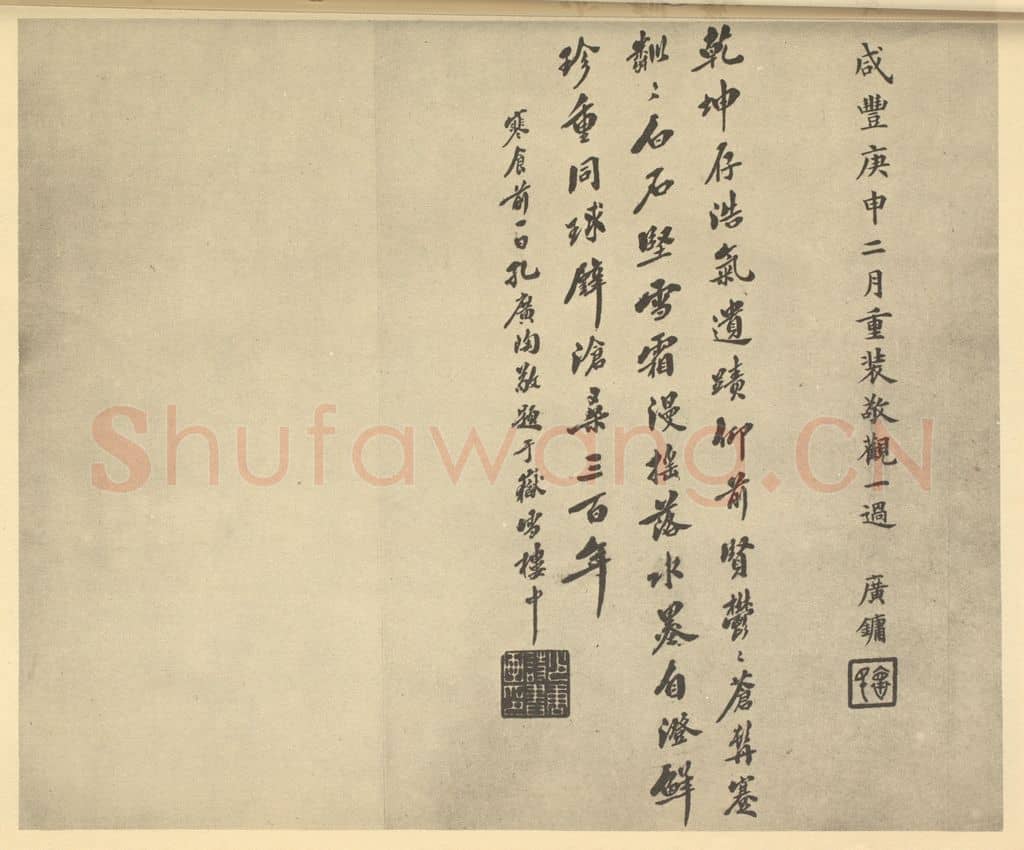 咸豐庚申二月重裝敬觀一過 廣鏞
乾坤存浩氣遺蹟仰前賢鬱〻蒼髯蹇
〻白石堅雪霜漫搖落水墨自澄鮮
珍重同球璧滄桑三百年
寒食前一日孔廣陶敬題于嶽雪樓中
Shufawang.CN